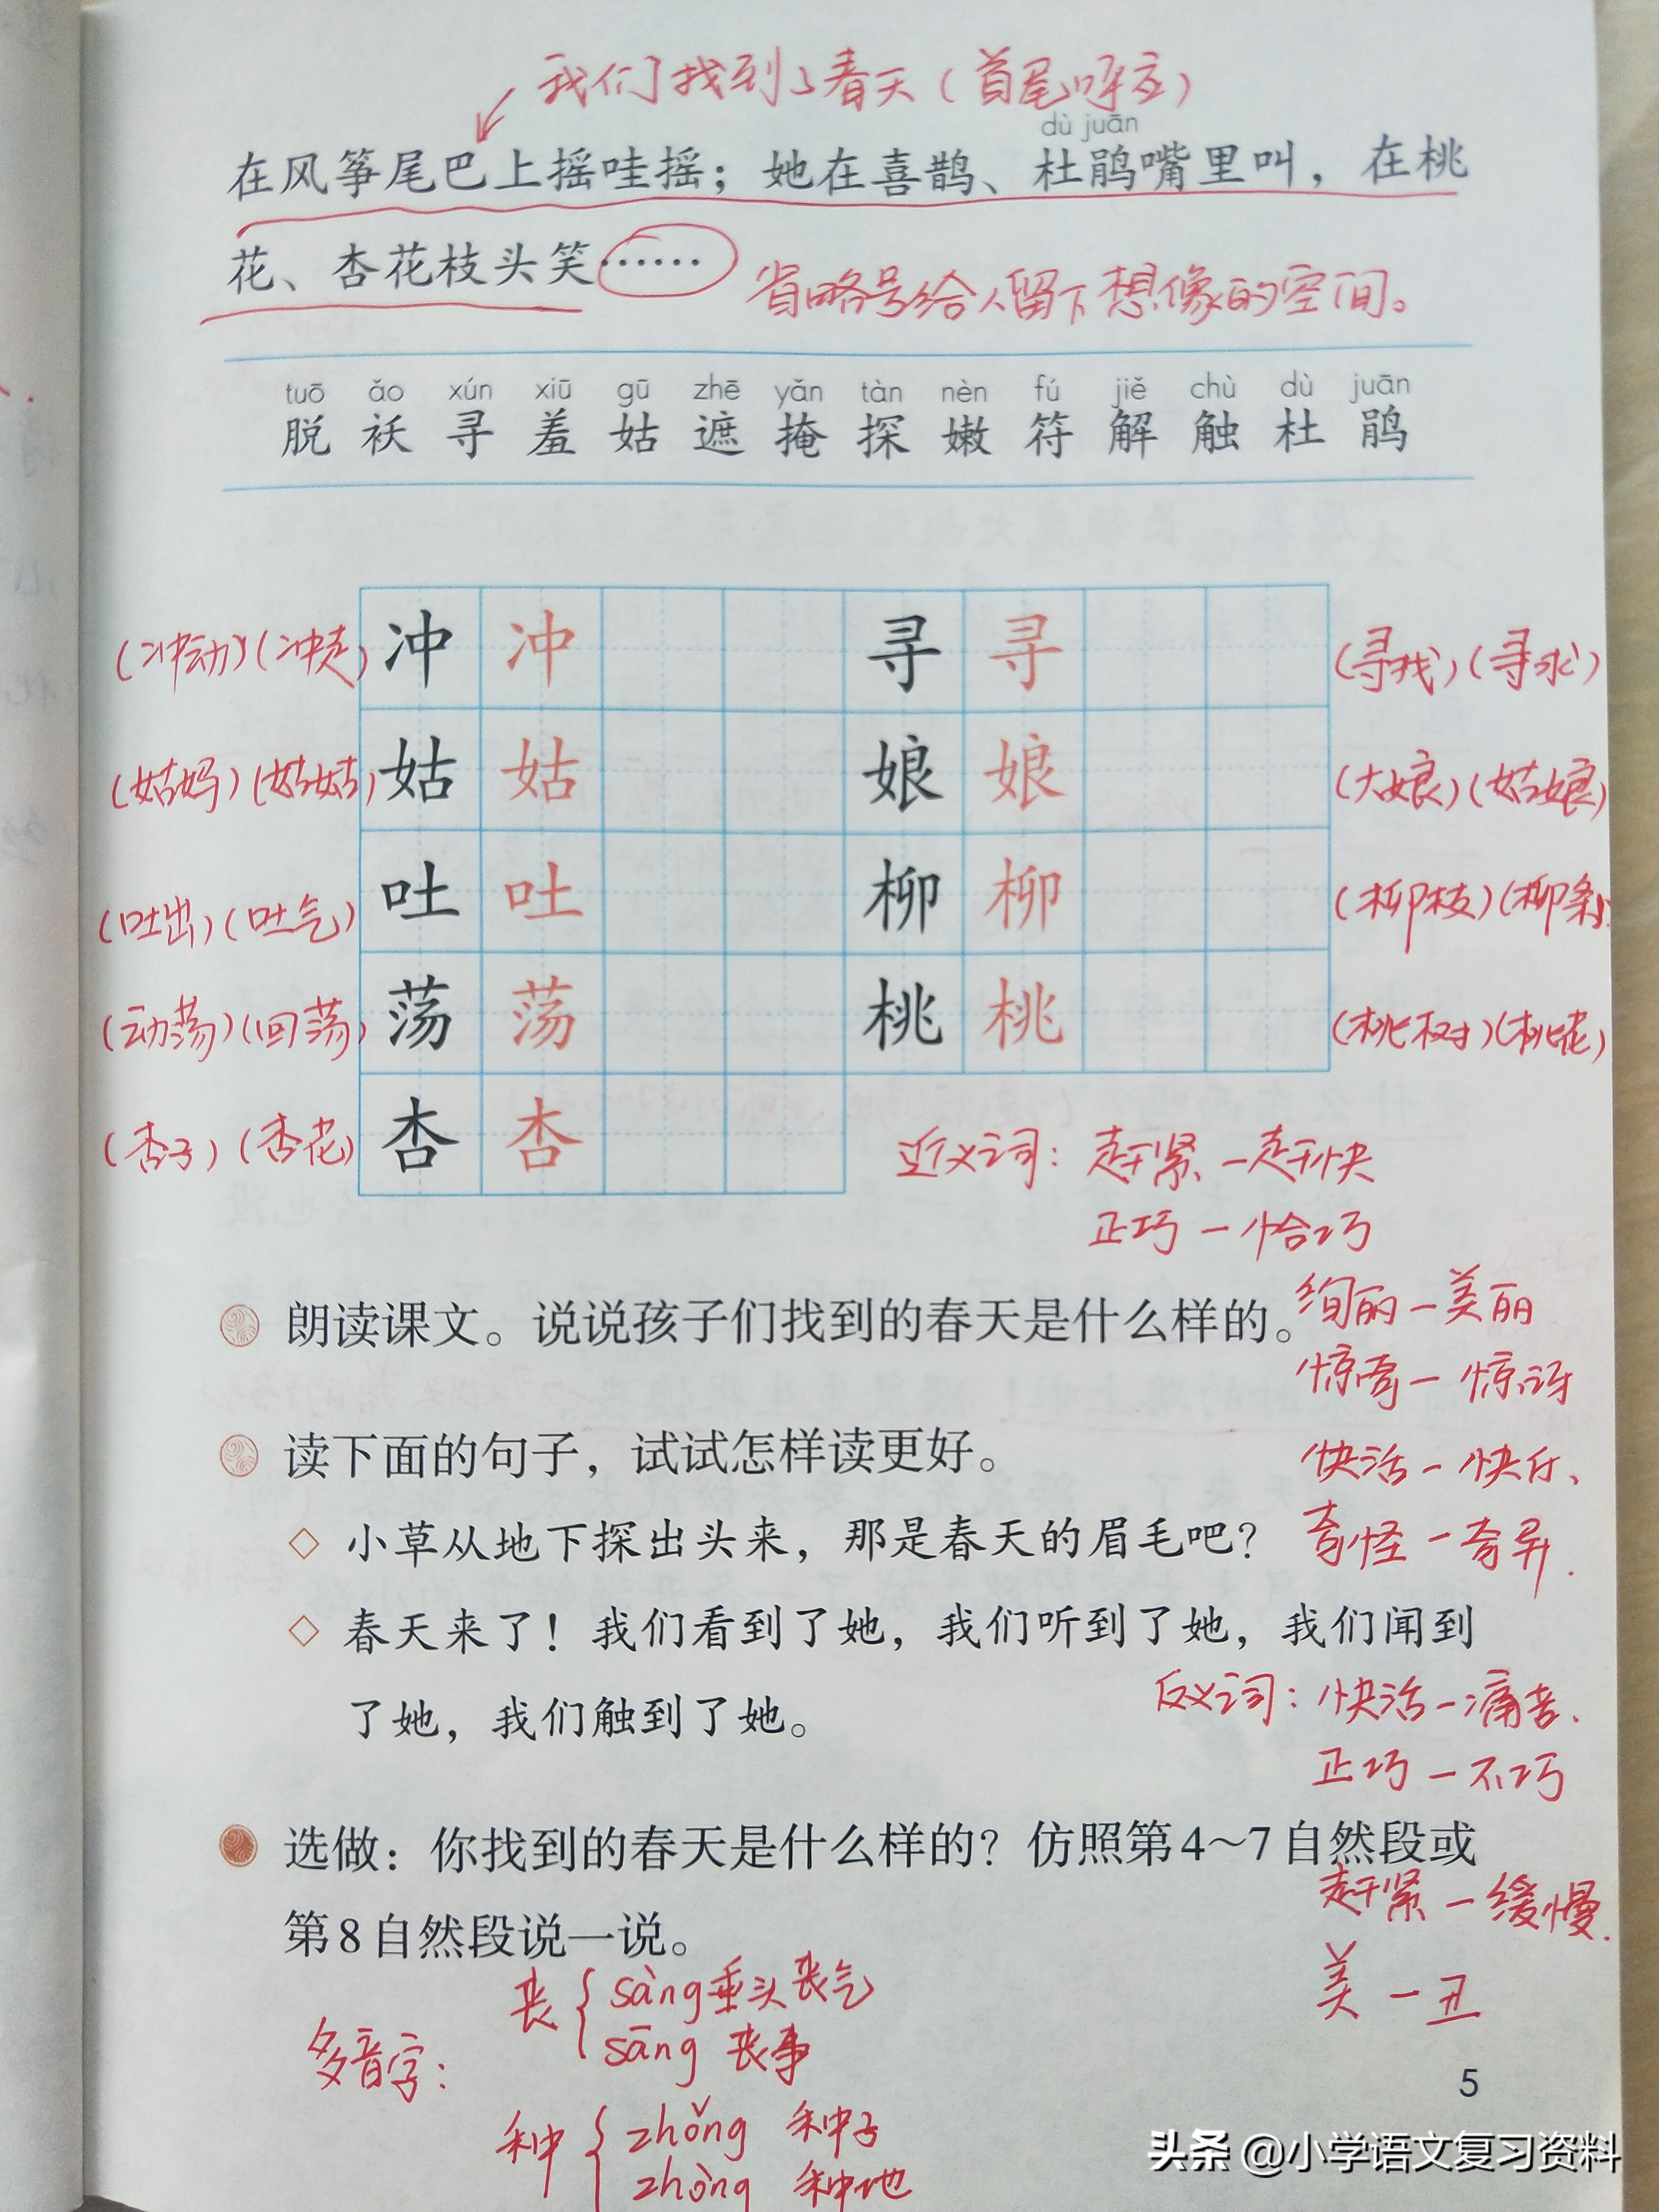 我们找到了春天(首尾呼应)
dù juān
在风筝尾巴上摇哇摇；她在喜鹊、杜鹃嘴里叫，在桃
花、杏花枝头笑……
省略号给人留下想像的空间。
tuō ǎo xún xiū gū zhē yǎn tàn nèn fú jiě chù dù juān
脱 袄 寻 羞 姑 遮 掩 探 嫩 符 解 触 杜 鹃
(冲动)(冲走) 冲 冲 寻 寻 (寻找)(寻求)
(姑妈)(姑姑) 姑 姑 娘 娘 (大娘)(姑娘)
(吐出)(吐气) 吐 吐 柳 柳 (柳枝)(柳条)
(动荡)(回荡) 荡 荡 桃 桃 (桃树)(桃花)
(杏子)(杏花) 杏 杏
近义词：赶紧—赶快
正巧—恰巧
朗读课文。说说孩子们找到的春天是什么样的。
绚丽—美丽
惊奇—惊讶
读下面的句子，试试怎样读更好。
快活—快乐、
小草从地下探出头来，那是春天的眉毛吧？
奇怪—奇异.
春天来了！我们看到了她，我们听到了她，我们闻到
了她，我们触到了她。
反义词：快活—痛苦、
正巧—不巧
选做：你找到的春天是什么样的？仿照第4～7自然段或
第8自然段说一说。
赶紧—缓慢.
美—丑
多音字：
丧 { sàng 垂头丧气
sāng 丧事
种 { zhǒng 种子
zhòng 种地
5
头条 @小学语文复习资料